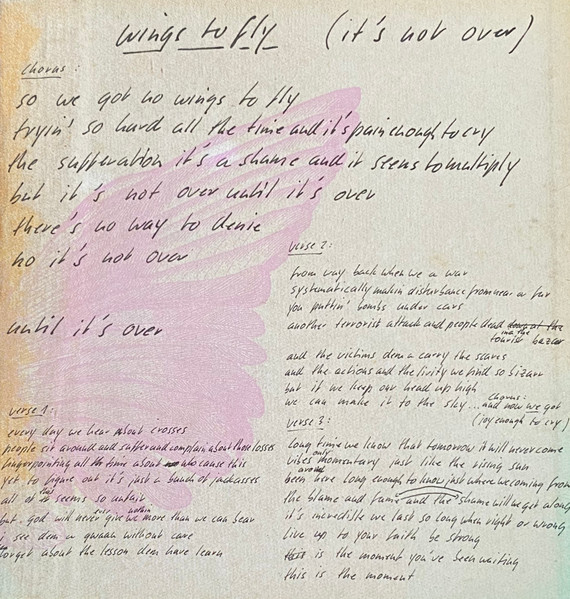 wings to fly (it's not over)
chorus:
so we got no wings to fly
tryin' so hard all the time and it's pain enough to cry
the supferation it's a shame and it seems to multiply
but it's not over until it's over
there's no way to denie
no it's not over
until it's over
verse 1:
every day we hear about crosses
people sit around and suffer and complain about those losses
fingerpointing all the time about who cause this
yet to figure out it's just a bunch of jackasses
all of this seems so unfair
but god will never ever give we more than we can bear
I see dem a gwaan without care
forget about the lesson dem have learn
verse 2:
from way back when we a war
systematically makin disturbance from near or far
you puttin' bombs under cars
another terrorist attack and people dead down at the
in a the
tourist bazar
and the victims dem a carry the scares
and the actions and the livity we find so bizarr
but if we keep our head up high
we can make it to the sky ... and now we got
chorus:
(joy enough to cry)
verse 3:
long time we know that tomorrow it will never come
vibes only momentary just like the rising sun
been around here long enough to know just where we coming from
the blame and fame and the shame will we get along
it's incredible we last so long when right or wrong
live up to your faith be strong
this is the moment you've been waiting
this is the moment